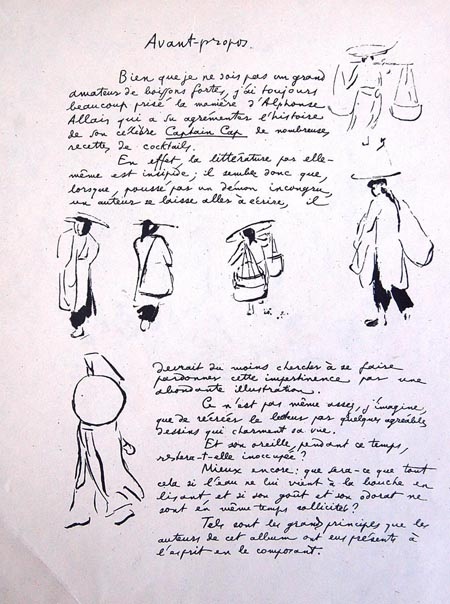 Avant-propos.
Bien que je ne sois pas un grand
amateur de boissons fortes, j'ai toujours
beaucoup prisé la manière d'Alphonse
Allais qui a su agrémenter l'histoire
de son célèbre Captain Cap de nombreuses
recettes de cocktails.
En effet, la littérature par elle-
même est insipide; il semble donc que,
lorsque, poussé par un démon incongru,
un auteur se laisse aller à écrire, il
devrait du moins chercher à se faire
pardonner cette impertinence par une
abondante illustration.
Ce n'est pas même assez, j'imagine,
que de récréer le lecteur par quelques agréables
dessins qui charment sa vue.
Et son oreille, pendant ce temps,
restera-t-elle inoccupée?
Mieux encore: que sera-ce que tout
cela si l'eau ne lui vient à la bouche en
lisant et si son goût et son odorat ne
sont en même temps sollicités?
Tels sont les grands principes que les
auteurs de cet album ont eus présents à
l'esprit en le composant.